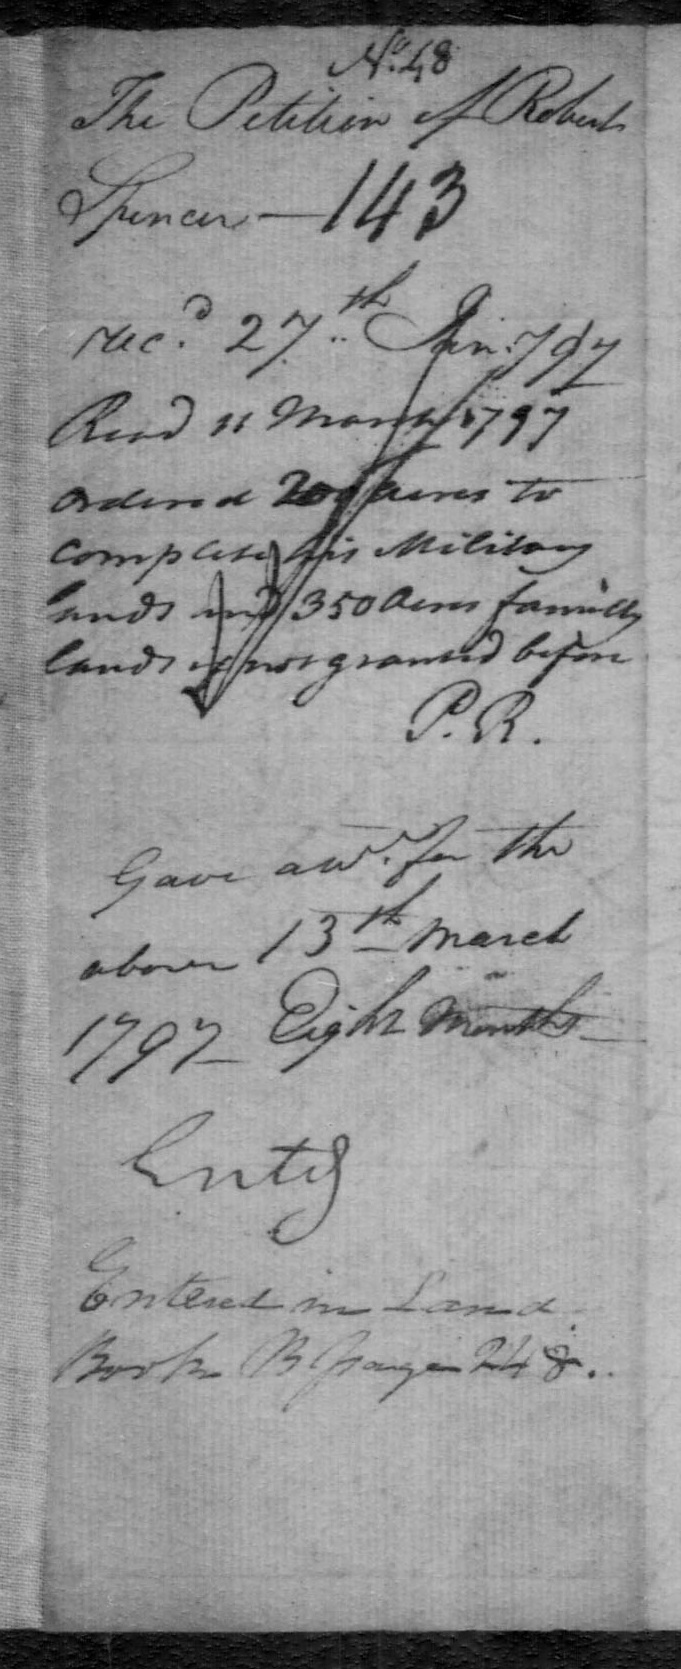 No. 48
The Petition of Robert
Spencer — 143
rec.d 27.th Jan: 797
Read 11 March 1797
ordered 200 acres to
complete his Military
lands and 350 acres family
lands if not granted before
P. R.
Gave aw.t for the
above 13th March
1797 Eight Months
Entd
Entered in Land
Book B page 248.